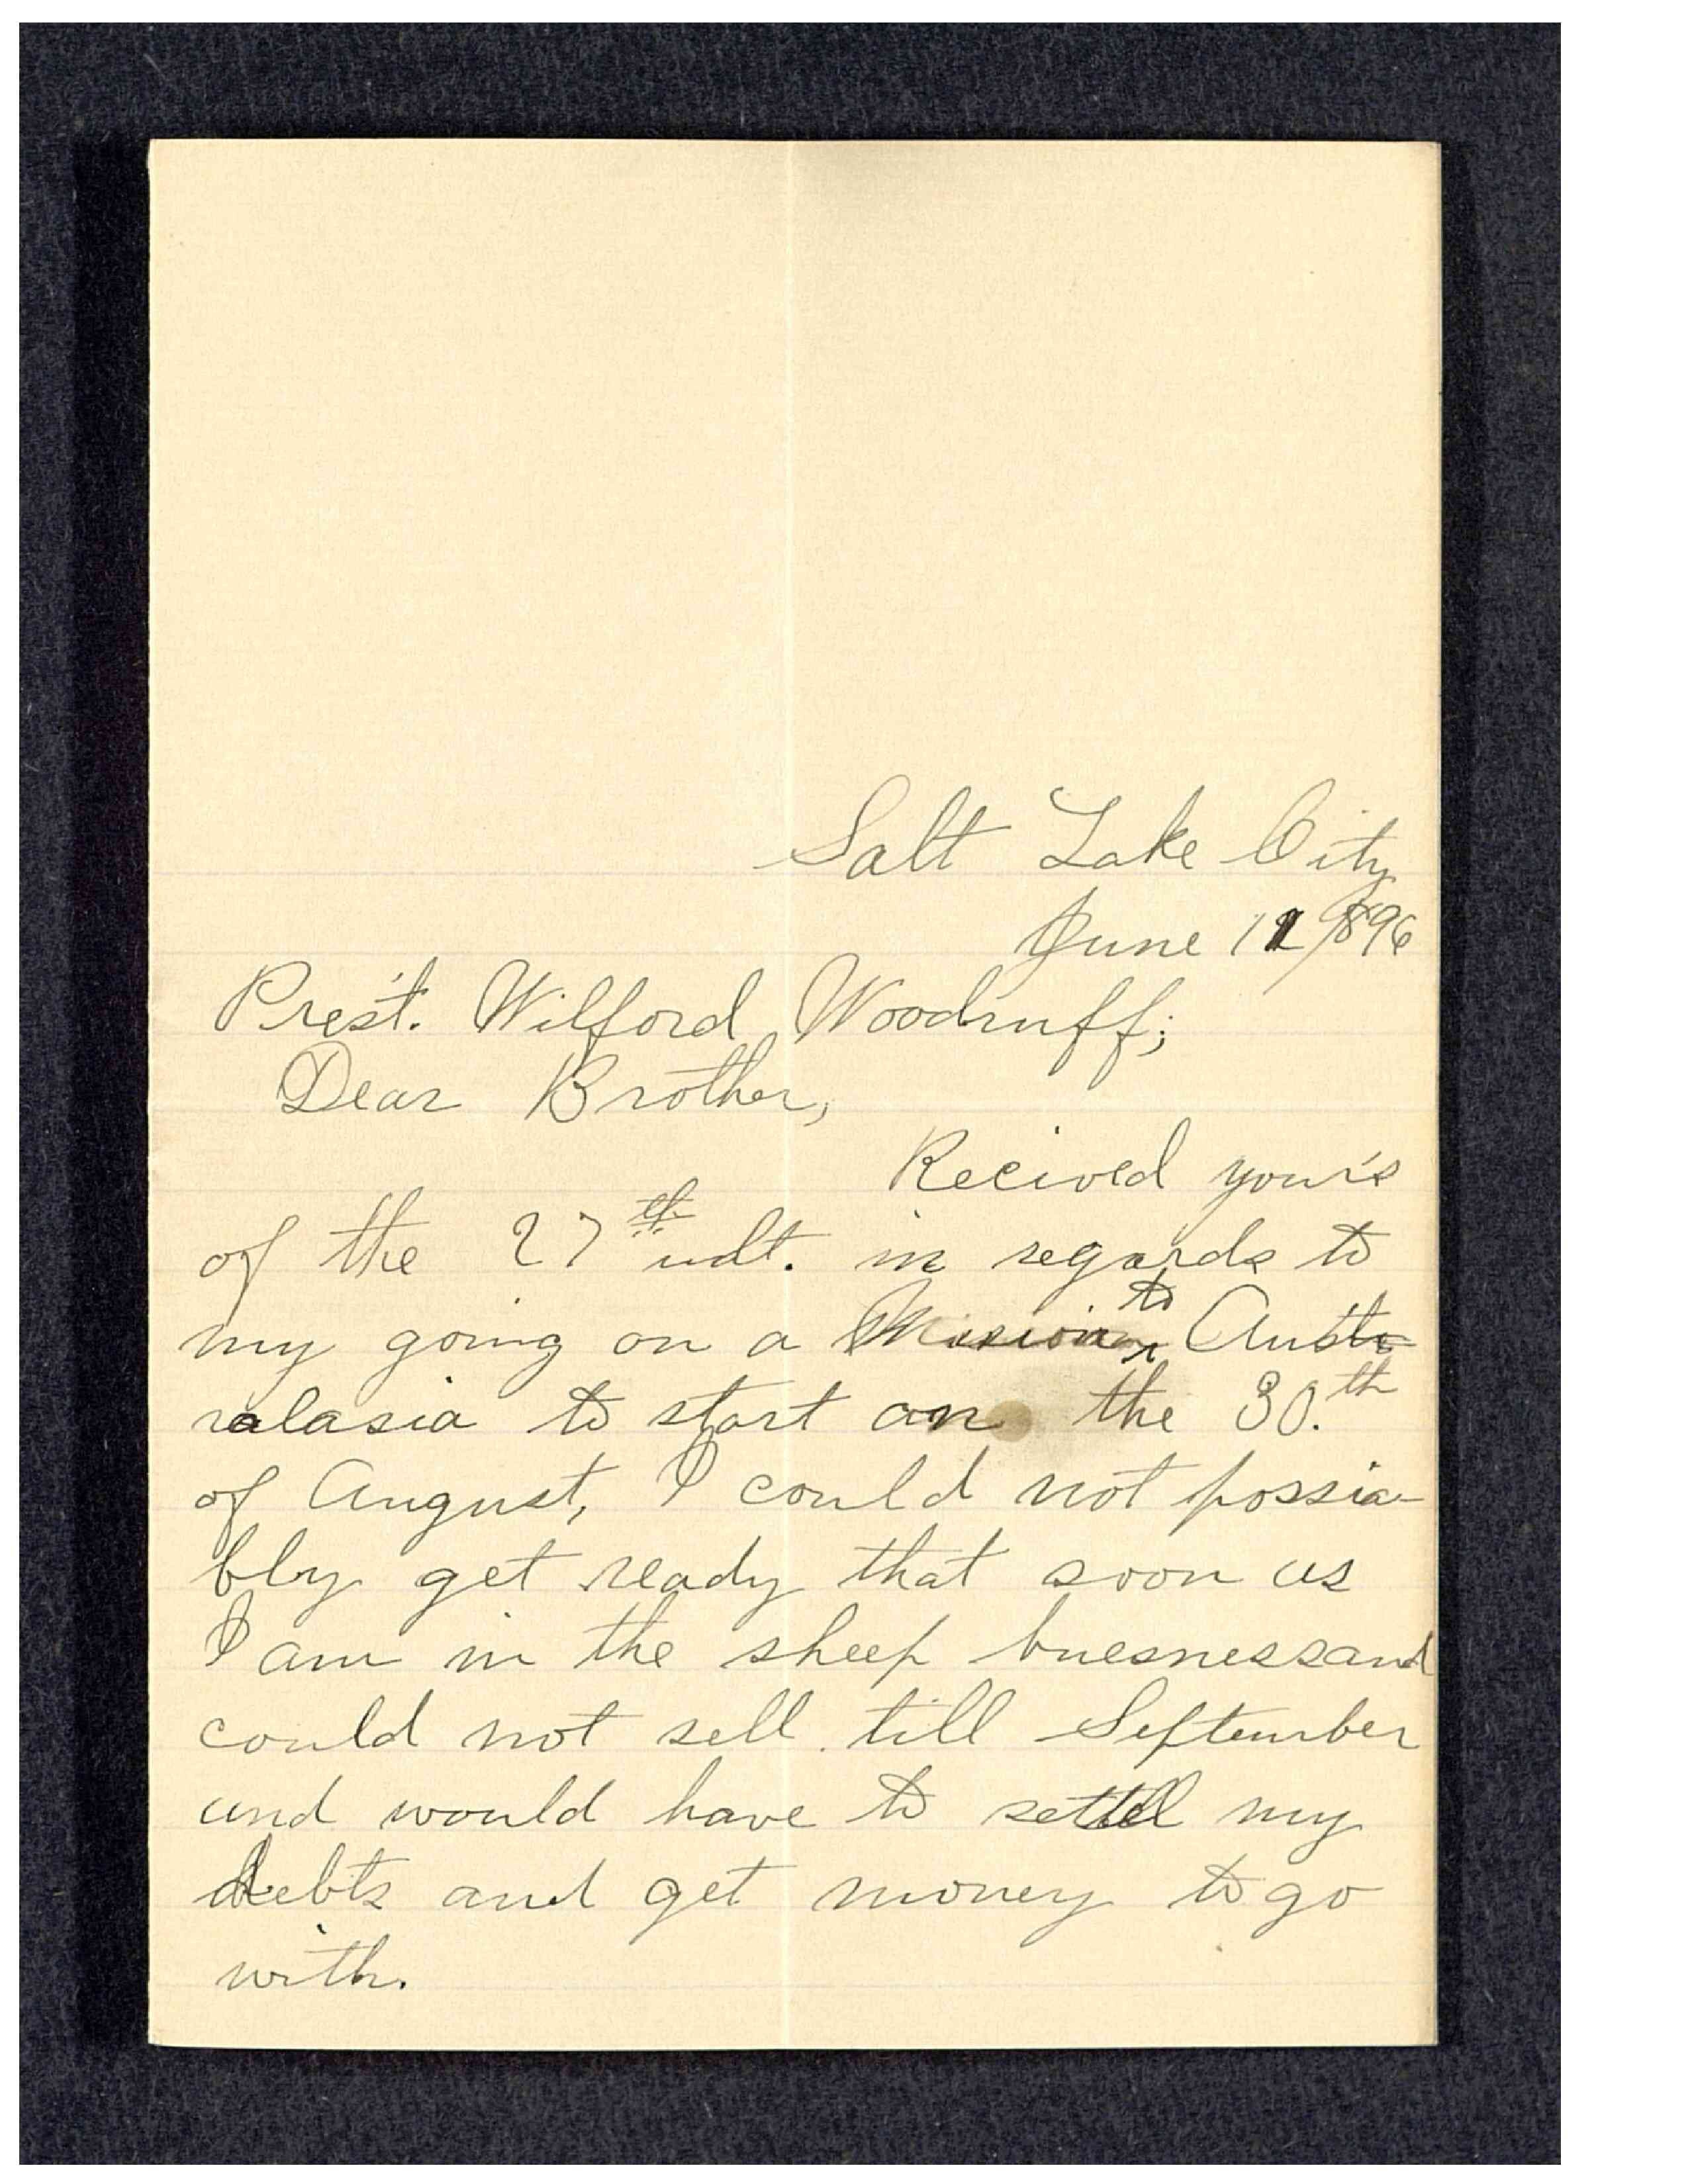 Salt Lake City
June 11 1896
Prest. Wilford Woodruff;
Dear Brother,
Recived your's
of the 27th udt. in regards to
my going on a Mission to Aust-
ralasia to start on the 30.th
of August, I could not possia-
bly get ready that soon as
I am in the sheep buesness and
could not sell till September
and would have to settel my
debts and get money to go
with.